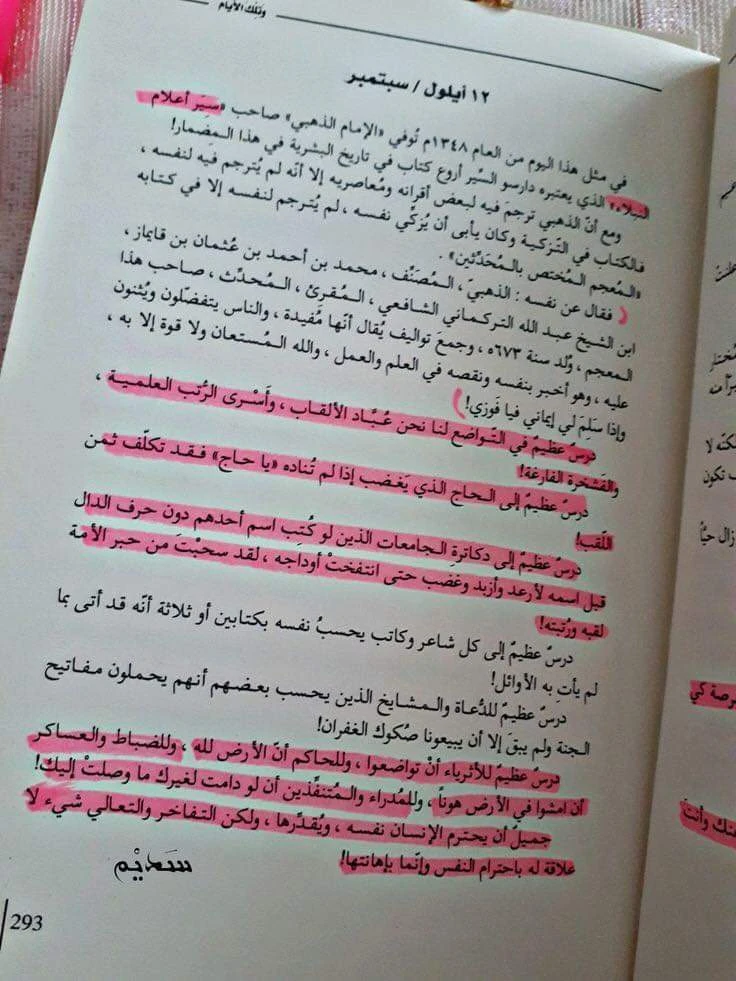 وتلك الأيام
١٢ أيلول / سبتمبر
في مثل هذا اليوم من العام ١٣٤٨م تُوفي «الإمام الذهبي» صاحب «سِيَر أعلام
النبلاء» الذي يعتبره دارسو السِّير أروع كتاب في تاريخ البشرية في هذا المِضمار!
ومع أنّ الذهبي ترجمَ فيه لبعض أقرانه ومُعاصريه إلا أنه لم يُترجم فيه لنفسه ،
فالكتاب في التّزكية وكان يأبى أن يُزكّي نفسه ، لم يُترجم لنفسه إلا في كتابه
«المُعجم المُختص بالمُحَدِّثين» .
فقال عن نفسه : الذهبيّ ، المُصَنِّف ، محمد بن أحمد بن عُثمان بن قايماز ،
ابن الشيخ عبد الله التركماني الشافعي ، المُقرئ ، المُحدِّث ، صاحب هذا
المعجم ، وُلد سنة ٦٧٣ه ، وجمع تواليف يُقال أنّها مُفيدة ، والناس يتفضّلون ويُثنون
عليه ، وهو أخبر بنفسه ونقصه في العلم والعمل ، والله المُستعان ولا قوة إلا به ،
وإذا سَلِمَ لي إيماني فيا فَوزي!
درس عظيمٌ في التّواضع لنا نحن عُبَّاد الألقاب ، وأَسْرى الرُّتب العلمية ،
والفَشخرة الفارغة!
درسٌ عظيمٌ إلى الحاج الذي يَغضب إذا لم تُناده «يا حاج» فقد تكلّف ثمن
اللّقب!
درسٌ عظيمٌ إلى دكاترةِ الجامعات الذين لو كُتب اسم أحدهم دون حرف الدال
قبل اسمه لأرعد وأزبد وغضب حتى انتفختْ أوداجه ، لقد سحبْتَ من حبر الأمّة
لقبه ورُتبته!
درسٌ عظيمٌ إلى كل شاعر وكاتب يحسبُ نفسه بكتابين أو ثلاثة أنه قد أتى بما
لم يأتِ به الأوائل!
درسٌ عظيمٌ للدُّعاة والمشايخ الذين يحسب بعضهم أنهم يحملون مفاتيح
الجنة ولم يبقَ إلا أن يبيعونا صُكوك الغفران!
درسٌ عظيمٌ للأثرياء أنْ تواضعوا ، وللحاكم أنّ الأرض لله ، وللضباط والعساكر
أن امشوا في الأرض هوناً ، وللمُدراء والمُتنفّذين أن لو دامت لغيرك ما وصلتْ إليك!
جميلٌ أن يحترم الإنسان نفسه ، ويُقدِّرها ، ولكن التفاخر والتعالي شيء لا
علاقة له باحترام النفس وإنّما بإهانتها!
سَديْم
293
لكنّه لا
تكون
زال حيًّا
رصة كي
وأنت